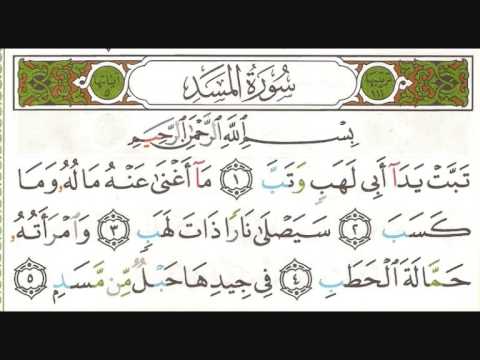 سُورَةُ المَسَدِ
بِسْمِ اللَّهِ الرَّحْمَٰنِ الرَّحِيمِ
تَبَّتْ يَدَآ أَبِي لَهَبٍ وَتَبَّ ١ مَآ أَغْنَىٰ عَنْهُ مَالُهُۥ وَمَا
كَسَبَ ٢ سَيَصْلَىٰ نَارًا ذَاتَ لَهَبٍ ٣ وَٱمْرَأَتُهُۥ
حَمَّالَةَ ٱلْحَطَبِ ٤ فِي جِيدِهَا حَبْلٌ مِّن مَّسَدٍ ٥